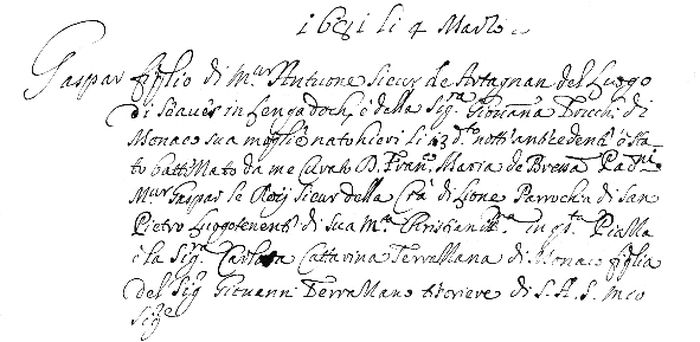 1681 li 4 Marzo
Gaspar figlio di M.ur Antuone Sieur de Artagnan del Luogo
di in Lengadoch, e della Sig.ra Giovanna Bocchi di
Monaco sua moglie nato hieri li 3 d.to notte antecedente è sta-
to battizzato da me Curato D. Fran.co Maria de Bressa Padni.
M.ur Gaspar le Roij Sieur della di Lione Parrochia di San
Pietro Luogotenente di sua M.tà Christianis.ma in q.ta Piazza
e la Sig.ra Carlota Cattarina Terrazzana di Monaco figlia
del Sig.r Giovanni Terrazzano di S. A. S. mio
Sig.re